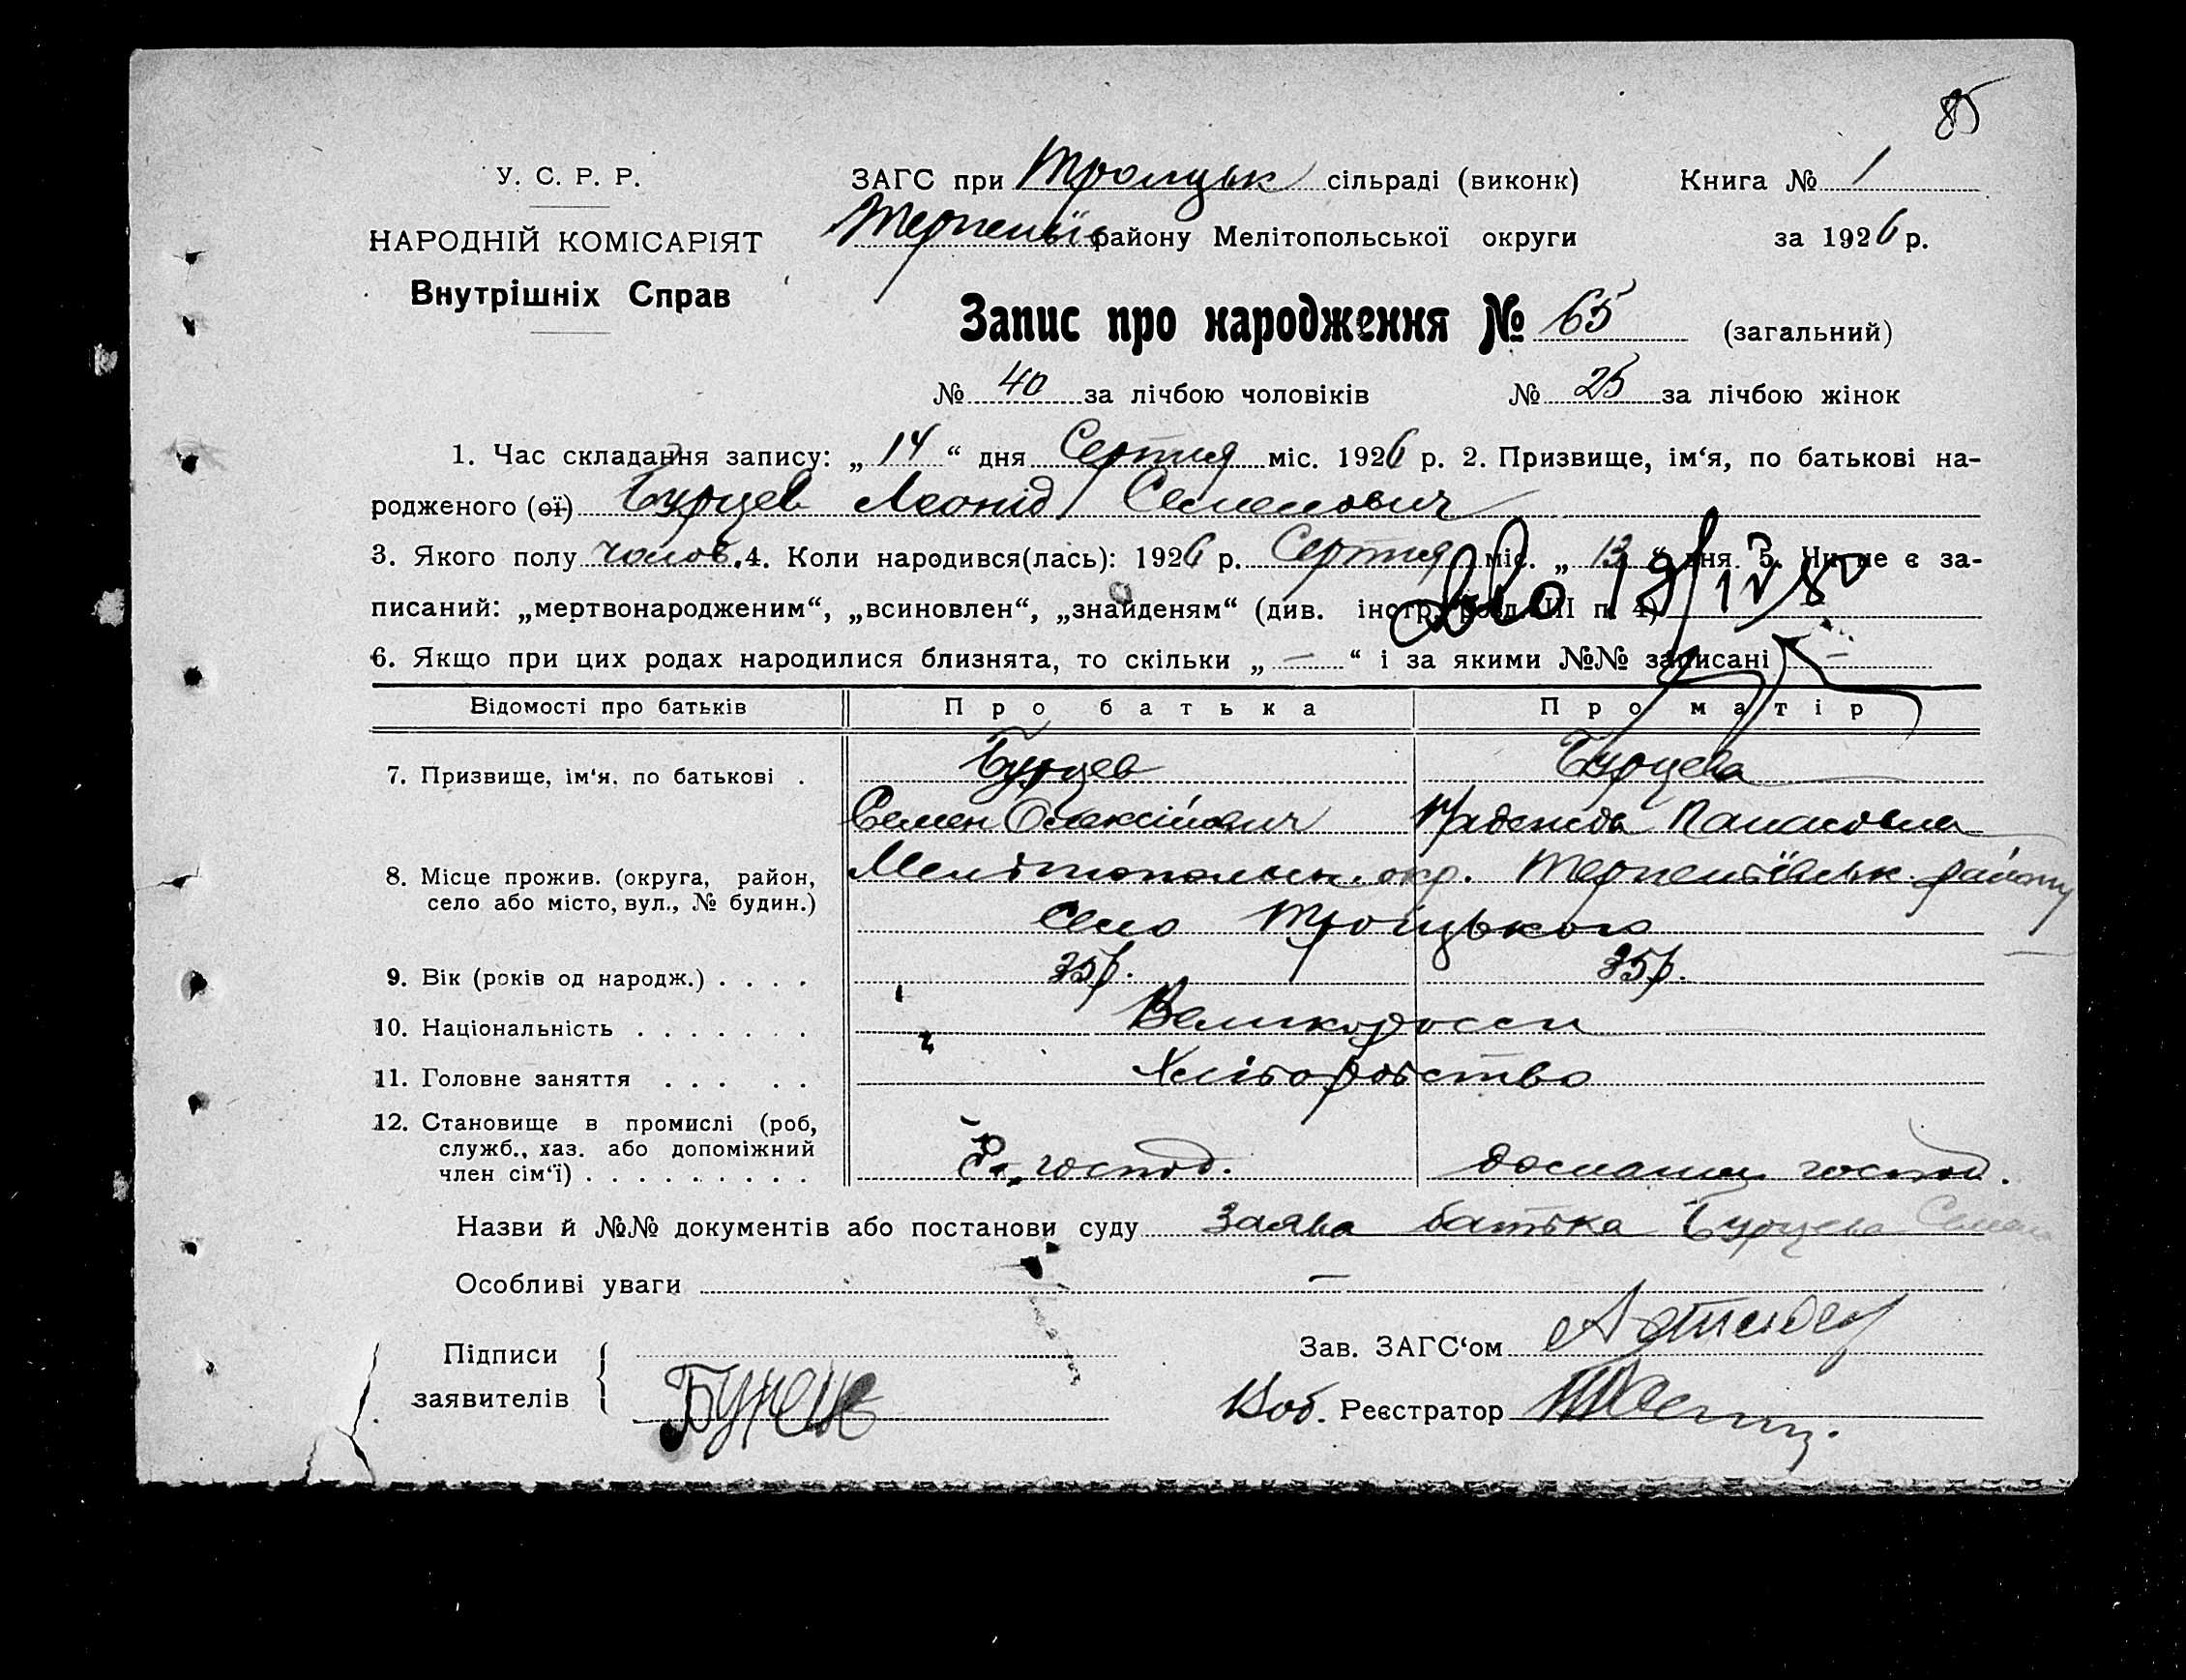 85
У. С. Р. Р.
НАРОДНІЙ КОМІСАРІЯТ
Внутрішніх Справ
ЗАГС при Троицьк сільраді (виконк) Книга № 1
району Мелітопольської округи за 1926 р.
Запис про народження № 65 (загальний)
№ 40 за лічбою чоловіків № 25 за лічбою жінок
1. Час складання запису: „ 14 “ дня міс. 1926 р. 2. Призвище, ім‘я, по батькові на-
родженого (ої) Бурцев Леонід Семенович
3. Якого полу чолов. 4. Коли народився(лась): 1926 р. міс. „ 13 “ дня. 5. Чи не є за-
писаний: „мертвонародженим“, „всиновлен“, „знайденям“ (див. інстр. розд. III п. 4)
6. Якщо при цих родах народилися близнята, то скільки „ — “ і за якими №№ записані —
Відомості про батьків Про батька Про матір
7. Призвище, ім‘я, по батькові . Бурцев Бурцева
Семен Олексійович Надежда Панасовна
8. Місце прожив. (округа, район, село або місто, вул., № будин.) Мелітопольськ. окр. Терпеніївськ. району
село Троицького
9. Вік (років од народж.) . . . . 35 р. 35 р.
10. Національність . . . . . . . Великоросси
11. Головне заняття . . . . . Хліборобство
12. Становище в промислі (роб, служб., хаз. або допоміжний член сім‘ї) . . . . . . . . . господ. домашн. господ.
Назви й №№ документів або постанови суду Заява батька Бурцева Семена
Особливі уваги —
Підписи
заявителів
Зав. ЗАГС‘ом
Реєстратор